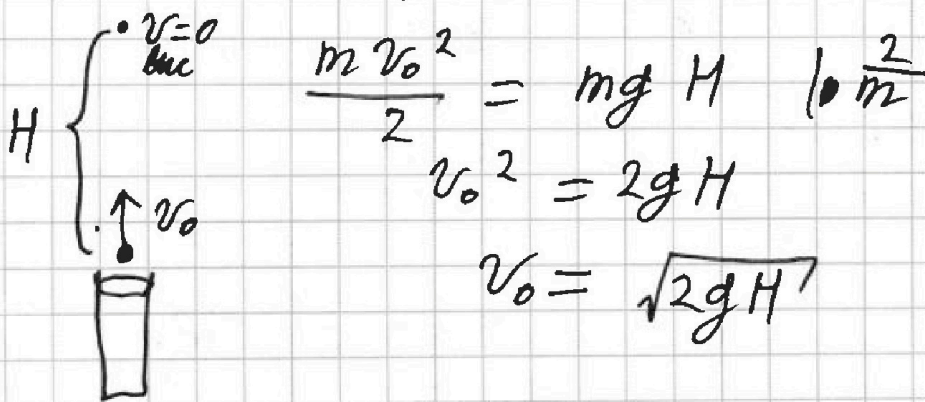 v=0
H
v₀
mv₀²/2 = mgH |· 2/m
v₀² = 2gH
v₀ = √2gH